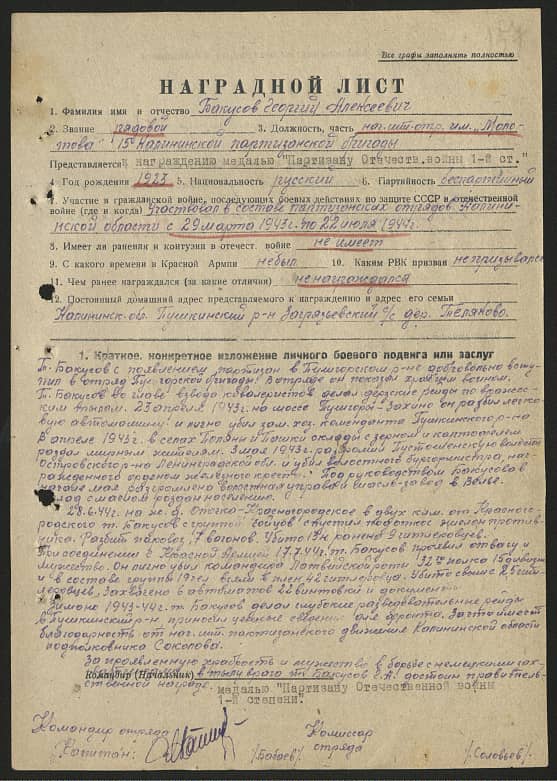 Все графы заполнить полностью
НАГРАДНОЙ ЛИСТ
1. Фамилия имя и отчество Бакусов Георгий Алексеевич
2. Звание рядовой 3. Должность, часть нач. шт. отр. им. "Моло-
това" 15й Калининской партизанской бригады
Представляется к награждению медалью "Партизану Отечеств.войны 1-й ст."
4 Год рождения 1923 5. Национальность русский 6. Партийность беспартийный
7. Участие в гражданской войне, последующих боевых действиях по защите СССР и отечественной
войне (где и когда) Участвовал в составе партизанских отрядов Калини-
нской области с 29 марта 1943г. по 22 июля 1944г.
8. Имеет ли ранения и контузии в отечест. войне не имеет
9. С какого времени в Красной Армии не был 10. Каким РВК призван не призывался
11. Чем ранее награждался (за какие отличия) не награждался
12. Постоянный домашний адрес представляемого к награждению и адрес его семьи
Калининск. обл. Пушкинский р-н Загрязьевский с/с дер. Теляково.
1. Краткое, конкретное изложение личного боевого подвига или заслуг
Т. Бакусов с появлением партизан в Пушгорском р-не добровольно всту-
пил в отряд Пушгорской бригады. В отряде он показал храбрым воином.
Т. Бакусов во главе взвода кавалеристов делал дерзкие рейды по вражес-
ким тылам. 23 апреля 1943г. на шоссе Пушгоры-Захино он разбил легко-
вую автомашину и лично убил зам. хоз. коменданта Пушкинского р-на
В апреле 1943г. в селах Поляны и Пошки склады с зерном и картофелем
раздал мирным жителям. 3 мая 1943г. разгромил волости
Островского р-на Ленинградской обл. и убил волостного бургомистра, наг-
ражденного орденом "железного креста". Под руководством Бакусова в
начале мая разгромлено волостная управа и масло-завод в Велье.
Склад с маслом роздан населению.
28.6.44г. на ж.д. Опочка-Красногородское в двух км. от Красного-
родского т. Бакусов с группой бойцов спустил под откос эшелон против-
ника. Разбит паровоз, 7 вагонов. Убито и ранено гитлеровцев.
При соединении с Красной Армией 17.7.44г. т. Бакусов проявил отвагу и
мужество. Он лично убил командира Латвийской роты 32го полка 15 дивизии
и в составе группы 19 чел взял в плен 42 гитлеровца. Убито свыше 25 гит-
леровцев. Захвачено 6 автоматов 22 винтовки и документы
Зимой 1943-44г. т Бакусов делал глубокие разведывательные рейды
в Пушкинский р-н, приносил ценные сведения для фронта. За что имеет
благодарность от нач. шт. партизанского движения Калининской области
подполковника Соколова.
За проявленную храбрость и мужество в борьбе с немецкими зах-
Командир (Начальник) в тылу врага т. Бакусов Г.А. достоин правитель-
ственной награде. медалью "Партизану Отечественной войны
1-й степени".
Командир отряда Комиссар
Капитан: /Бабаев/ отряда /Соловьев/